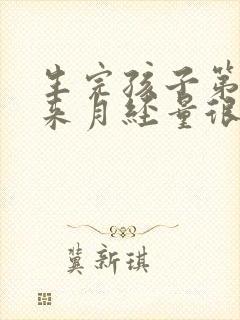 生完孩子第
来月经量很
冀新琪